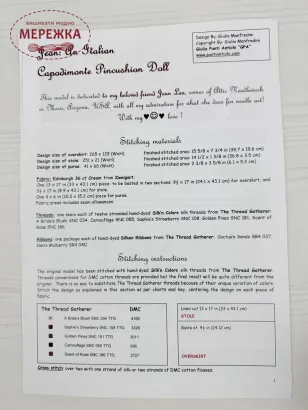 вишивати модно
МЕРЕЖКА
Design By: Giulia Manfredini
Copyright By: Giulia Manfredini
Giulia Punti Antichi "GPA"
www.puntiantichi.com
Jean: An Italian
Capodimonte Pincushion Doll
This model is dedicated to my beloved friend Jean Lea, owner of Attic Needlework
in Mesa, Arizona, USA with all my admiration for what she does for needle art!
With my love !
Stitching materials
Design size of overskirt: 265 x 129 (WxH)
finished stitched area:
Design size of stole: 251 x 21 (WxH)
finished stitched area: 14 1/2 x 1 5/8 in
Design size of purse: 41 x 66 (WxH)
finished stitched area: 2 3/8 x 3 5/8 in
Fabric: Edinburgh 36 ct Cream from Zweigart.
One 13 x 17 in (33 x 43.1 cm) piece to be basted in two sections: 9½ x 17 in (24.1 x 43.1 cm) for overskirt, and
3½ x 17 in (8.9 x 43.1 cm) for stole.
One 6 x 6 in (15.2 x 15.2 cm) piece for purse.
Fabric areas include seam allowances.
Threads: one each of twelve stranded hand-dyed Silk'n Colors silk threads from The Thread Gatherer:
A Bride's Blush SNC 034, Camouflage SNC 055, Sophia's Strawberry SNC 158, Golden Pines SNC 181, Scent of
Rose SNC 186.
Ribbons: one package each of hand-dyed Silken Ribbons from The Thread Gatherer: Cactus's Bends SR4 037,
Stitching instructions
The original model has been stitched with hand-dyed Silk'n Colors silk threads from The Thread Gatherer.
Threads conversions for DMC cotton threads are provided but the final result will be quite different from the
original. There is no way to substitute The Thread Gatherer threads because of their unique variation of colors.
Stitch the design as explained in this section as per charts and key, centering the design on each piece of
fabric.
The Thread Gatherer DMC
A Bride's Blush SNC 034 TTG
Sophia's Strawberry SNC 158 TTG 3328
Golden Pines SNC 181 TTG 3011
Camouflage SNC 055 TTG
Scent of Rose SNC 186 TTG
Linen cut 13 x 17 in (33 x 43.1 cm)
STOLE
OVERSKIRT
Cross stitch: over two with one strand of silk or two strands of DMC cotton flosses.
1